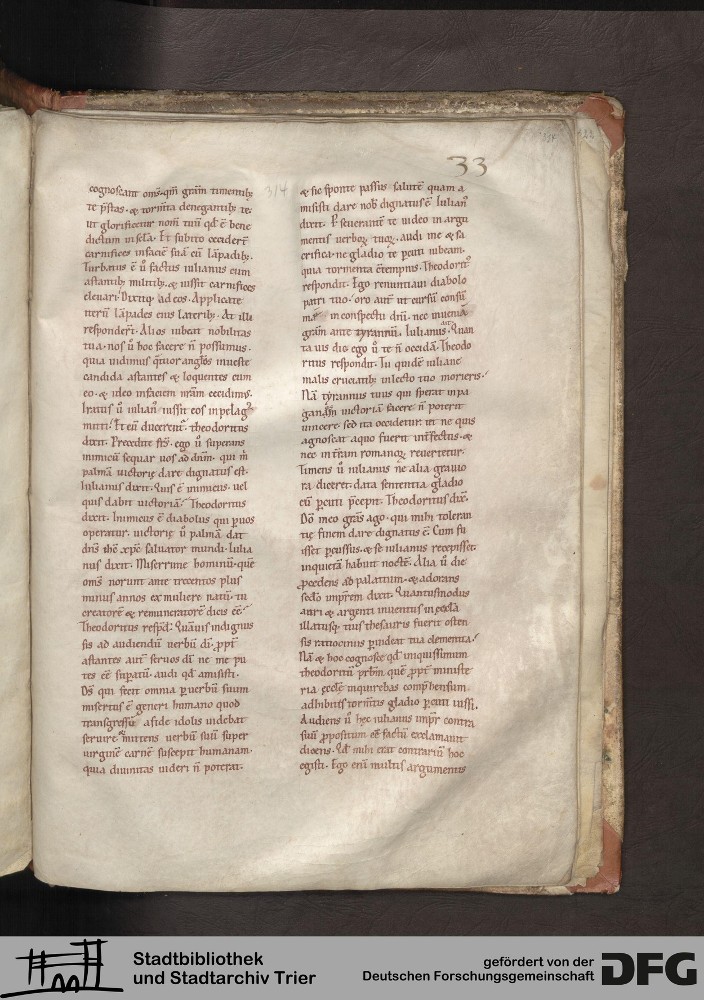 33
314
cognoscant oms̄. qm̄ gr̄am timentib;
te p̄stas. & torm̄ta denegantib; te.
ut glorificetur nom̄ tuū qd̄ ē bene
dictum in sc̄la. Et subito cecider̄t
carnifices in faciē suā cū lāpadib;.
Turbatus ē ū factus iulianus cum
astantib; multib; & iussit carnifices
eleuari. Dixitq; ad eos. Applicate
iterū lāpades eius laterib;. At illi
responder̄t. Alios iubeat nobilitas
tua. nos ū hoc facere n̄ possumus.
quia uidimus q̄tuor angłos in ueste
candida astantes & loquentes cum
eo. & ideo in faciem nr̄am cecidim̄.
Iratus ū iulian̄ iussit eos in pelag
mitti. Et cū ducerent̄ theodoritus
dixit. Precedite fr̄s. ego ū superans
inimicū sequar uos ad dn̄m. qui m̄
palmā uictorię dare dignatus est.
Iulianus dixit. Quis ē inimicus. uel
quis dabit uictoriā? Theodoritus
dixit. Inimicus ē diabolus qui p uos
operatur. uictorię ū palmā dat
dn̄s ih̄c xp̄c saluator mundi. Iulia
nus dixit. Miserrime hominū. quē
oms̄ norunt ante trecentos plus
minus annos ex muliere natū. tu
creatorē & remuneratorē dicis eē?
Theodoritus resp̄d. Quāuis indignus
sis ad audiendū uerbū dī. ppt̄
astantes aut̄ seruos dī ne me pu
tes eē supatū. audi qd̄ amisisti.
Ds̄ qui fecit omnia p uerbū suum
misertus ē generi humano quod
transgressū a fide idolis uidebat
seruire. mittens uerbū suū super
uirginē carnē suscepit humanam.
quia diuinitas uideri n̄ poterat.
& sic sponte passus salutē quam a
misisti dare nob̄ dignatus ē. Iulian̄
dixit. Pseuerantē te uideo in argu
mentis verboꝝ tuoꝝ. audi me & sa
crifica. ne gladio te pcuti iubeam.
quia tormenta cōtempnis. Theodorit
respondit. Ego renuntiaui diabolo
patri tuo. oro aut̄ ut cursū cōsū
mā in conspectu dn̄i. nec inueniā
gr̄am ante tyrannū. Iulianus. Quan
ta uis dic. ego ū te n̄ occidā. Theodo
ritus respondit. Tu quidē iuliane
malis cruciatib; in lecto tuo morieris.
Nā tyrannus tuus qui sperat in pa
ganism̄ uictoriā facere n̄ poterit
uincere. sed ita occidetur. ut ne quis
agnoscat a quo fuerit int̄fectus. &
nec in tr̄am romanoꝝ reuertetur.
Timens ū iulianus ne alia grauio
ra diceret. data sententia gladio
eū pcuti p̄cepit. Theodoritus dix̄.
Dō meo gr̄as ago. qui mihi toleran
tię finem dare dignatus ē. Cum fu
isset pcussus. & se iulianus recepisset.
inquietā habuit noctē. Alia ū die
pcedens ad palatium. & adorans
sedit impr̄em dixit. Quantus modus
auri & argenti inuentus in ęccła
illatusq; tuis thesauris fuerit osten
sis ratiociniis puideat tua clementia.
Nā & hoc cognosce qd̄ iniquissimum
theodoritū prb̄m. quē ppt̄ ministe
ria ęccłę inquirebas comp̄hensum.
adhibitis torm̄tis gladio pcuti iussi.
Audiens ū hęc iulianus impr̄ contra
suū ppositum eē factū exclamauit
dicens. Qd̄ mihi erat contrariū hoc
egisti. Ego enī multis argumentis
Stadtbibliothek
und Stadtarchiv Trier
gefördert von der
Deutschen Forschungsgemeinschaft
DFG